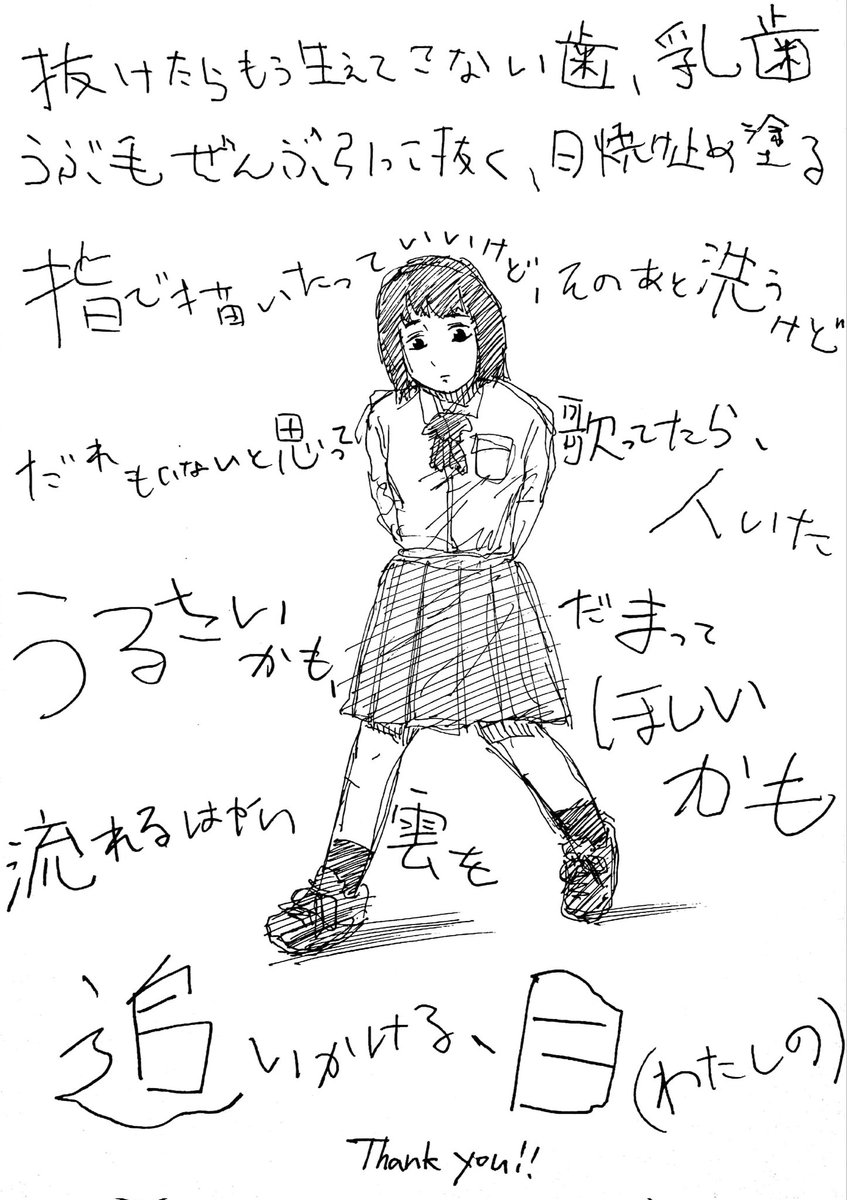 抜けたらもう生えてこない歯、乳歯
うぶ毛ぜんぶ引っこ抜く、日焼け止め塗る
指で描いたっていいけど、そのあと洗うけど
だれもいないと思って歌ってたら、
人いた
うるさいかも、だまって
ほしい
かも
流れるはやい雲を
追いかける、目(わたしの)
Thank you!!